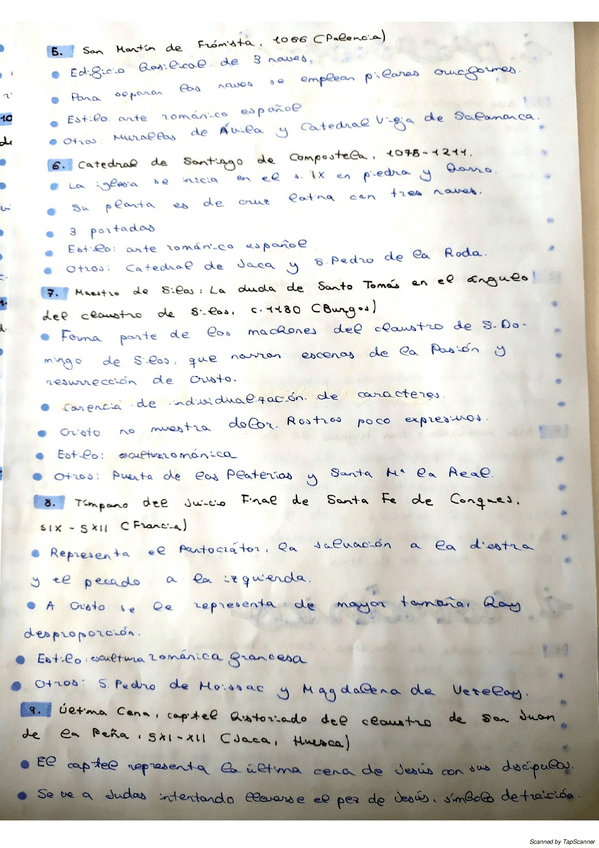 5. San Martín de Frómista, 1066 (Palencia)
• Edificio Basilical de 3 naves,
• Para separar las naves se emplean pilares cruciformes.
• Estilo arte románico español
• Otros: Murallas de Ávila y Catedral Vieja de Salamanca.
6. Catedral de Santiago de Compostela, 1075-1211.
• La iglesia se inicia en el s. IX en piedra y barro.
• Su planta es de cruz latina con tres naves.
• 3 portadas
Estilo: arte románico español
• Otros: Catedral de Jaca y S. Pedro de la Roda.
7. Maestro de Silos: La duda de Santo Tomás en el ángulo
del claustro de Silos, c. 1180 (Burgos)
• Forma parte de los machones del claustro de S. Do-
mingo de Silos, que narran escenas de la Pasión y
resurrección de Cristo.
• Carencia de individualización de caracteres.
• Cristo no muestra dolor. Rostros poco expresivos.
• Estilo: escultura románica
• Otros: Puerta de las Platerías y Santa Mª la Real.
8. Tímpano del Juicio Final de Santa Fe de Conques,
SIX - SXII (Francia)
• Representa el Pantocrátor, la salvación a la diestra
y el pecado a la izquierda.
• A Cristo se le representa de mayor tamaña, hay
desproporción.
• Estilo: escultura románica francesa
• Otros: S. Pedro de Moissac y Magdalena de Vezelay.
9. Última Cena, capitel historiado del claustro de San Juan
de la Peña, SXI-XII (Jaca, Huesca)
• El capitel representa la última cena de Jesús con sus discípulos.
• Se ve a Judas intentando llevarse el pez de Jesús, símbolo de traición.
Scanned by TapScanner